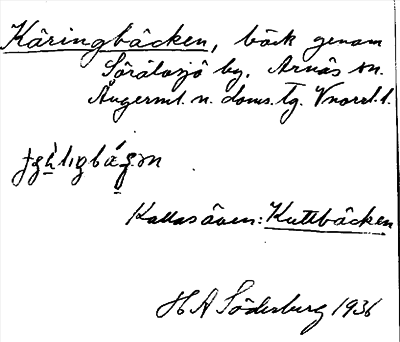 Käringbäcken, bäck genom
Sörålasjö by, Arnäs sn.
Ångerml. n. doms. tg. Vnorrl. l.
Kallas även: Kuttbäcken
H A Söderburg 1936